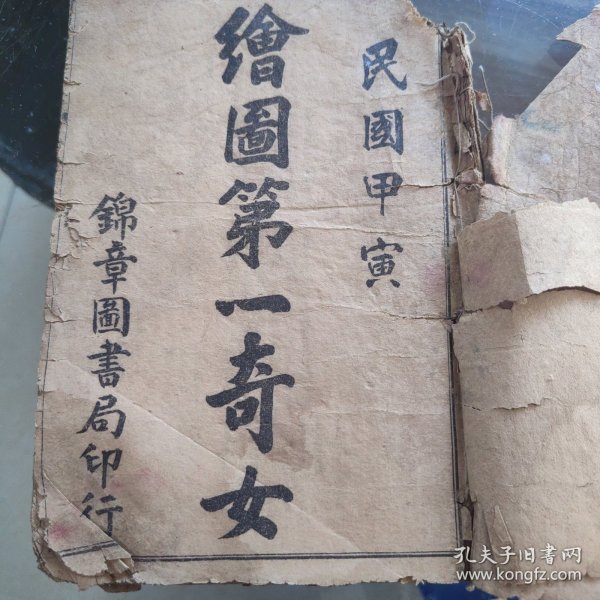 民國甲寅
繪圖第一奇女
錦章圖書局印行
孔夫子旧書网
www.kongfz.com